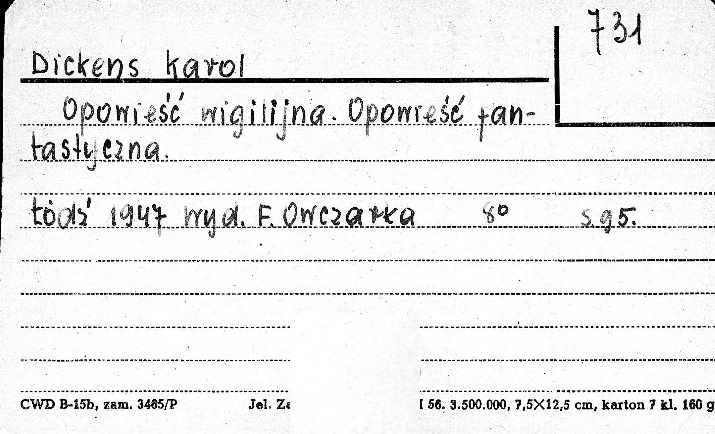 731
Dickens Karol
Opowieść wigilijna. Opowieść fan-
tastyczna.
Łódź 1947 wyd. F. Owczarka 8° s. 95.
CWD B-15b, zam. 3465/P Jel. 56. 3.500.000, 7,5×12,5 cm, karton 7 kl. 160 g